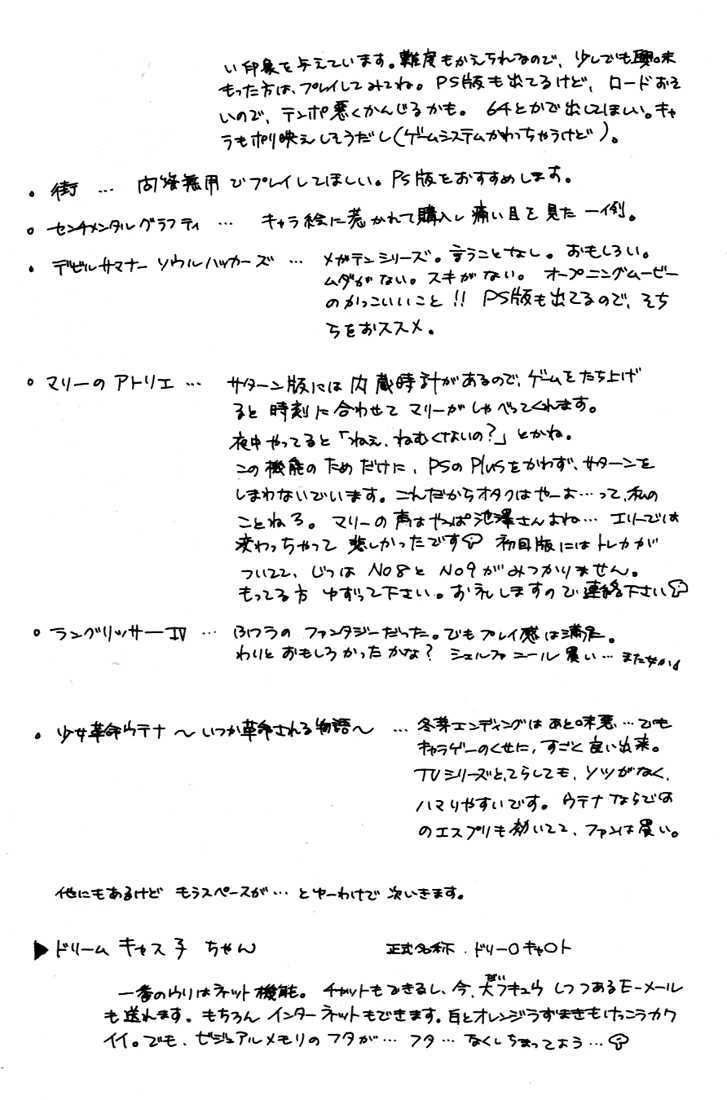 い印象を与えています。難度もかえられるので、少しでも興味
もった方は、プレイしてみてね。PS版も出てるけど、ロードおそ
いので、テンポ悪くかんじるかも。64とかで出してほしい。キャ
ラもポリ映えしそうだし(ゲームシステムかわっちゃうけど)。
• 街 … 問答無用でプレイしてほしい。PS版をおすすめします。
• センチメンタルグラフティ … キャラ絵に惹かれて購入し痛い目を見た一例。
• デビルサマナー ソウルハッカーズ … メガテンシリーズ。言うことなし。おもしろい。
ムダがない。スキがない。オープニングムービー
のかっこいいこと!! PS版も出てるので、そち
らをおススメ。
• マリーのアトリエ … サターン版には内蔵時計があるので、ゲームをたち上げ
ると時刻に合わせてマリーがしゃべってくれます。
夜中やってると「ねえ、ねむくないの?」とかね。
この機能のためだけに、PSのPlusをかわず、サターンを
しまわないでいます。これだからオタクはやーよ…って、私の
ことねろ。マリーの声はやっぱ池澤さんよね…エリーでは
変わっちゃって悲しかったです 初回版にはトレカが
ついてて、じつはNo8とNo9がみつかりません。
もってる方ゆずって下さい。お礼しますので連絡下さい
• ラングリッサーIV … ふつうのファンタジーだった。でもプレイ感は満足。
わりとおもしろかったかな? シェルファニール買い…また女かよ
• 少女革命ウテナ 〜いつか革命される物語〜 … 冬芽エンディングはあと味悪…でも
キャラゲーのくせに、すごく良い出来。
TVシリーズとてらしても、ソツがなく、
ハマりやすいです。ウテナならでは
のエスプリも効いてて、ファンは買い。
他にもあるけど もうスペースが…とゆーわけで次いきます。
▶ドリームキャス子ちゃん 正式名称.ドリー〇キャ〇ト
一番のウリはネット機能。チャットもできるし、今、大(だい)フキュウしつつあるE-メール
も送れます。もちろんインターネットもできます。白とオレンジうずまきもけっこうカワ
イイ。でも、ビジュアルメモリのフタが…フタ…なくしちまってよう…